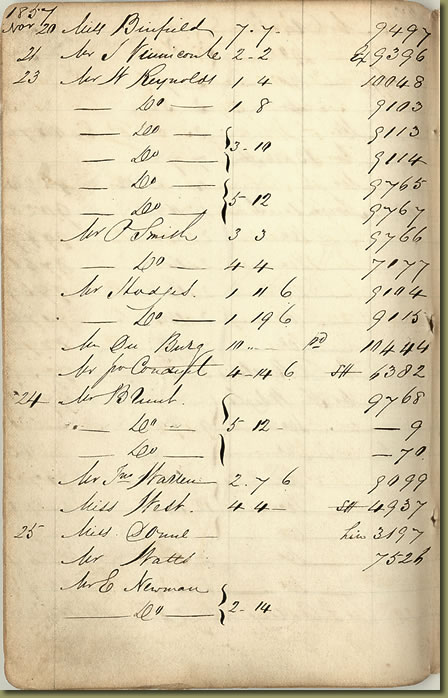 1857
Nov 20 Miss Binfield 7 . 7 . 9497
21 Mr J Vinnicombe 2 - 2 Ex 9396
23 Mr W Reynolds 1 4 10048
— Do — 1 8 9103
— Do — 9113
— Do — 3 - 10 9114
— Do — 9765
— Do — 5 12 9767
Mr P Smith 3 3 9766
— Do — 4 4 7077
Mr Hodges. 1 11 6 9104
— Do — 1 19 6 9115
Mr Du Burg 10 .. pd 10444
Mr Jno Conduit 4 - 14 6 SH 6382
24 Mr Blunt. 9768
Do — 5 - 12 - — 9
— Do — — 70
Mr Jno Warren 2 . 7 6 9099
Miss West 4 4 - SH 4937
25 Miss Donne 3197
Mr Watts 7526
Mr E Newman
— Do — 2 - 14